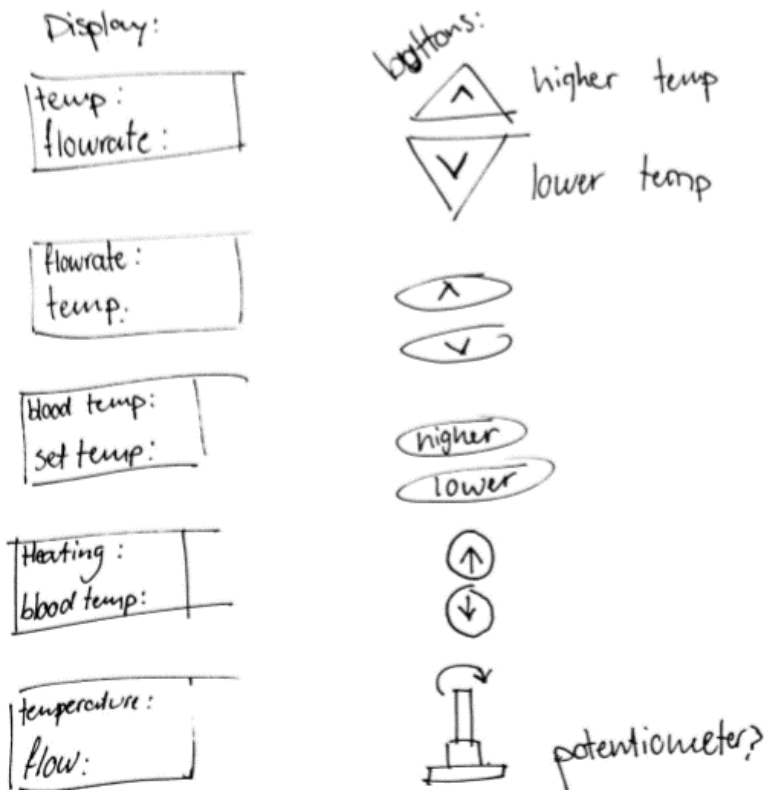 Display:
temp:
flowrate:
flowrate:
temp:
blood temp:
set temp:
Heating:
blood temp:
temperature:
flow:
buttons:
^
higher temp
v
lower temp
^
v
higher
lower
↑
↓
potentiometer?